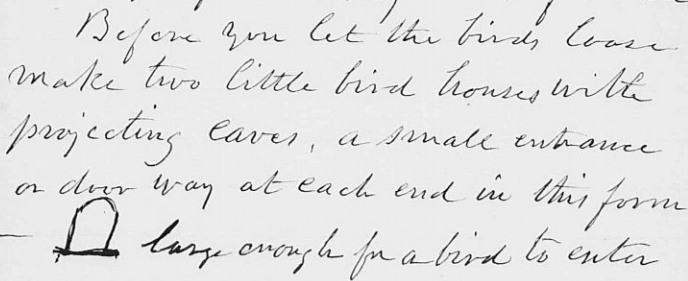 Before you let the birds loose
make two little bird houses with
projecting eaves, a small entrance
or door way at each end in this form
— large enough for a bird to enter